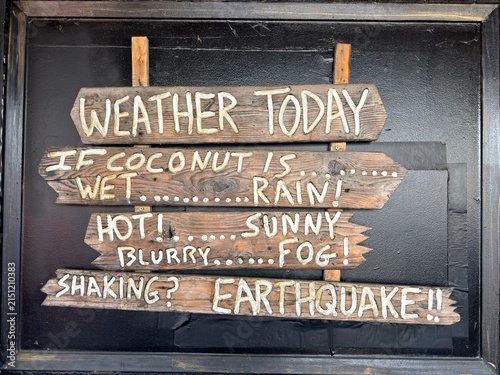 WEATHER TODAY
IF COCONUT IS......
WET..........RAIN!
HOT!.......SUNNY
BLURRY......FOG!
SHAKING? EARTHQUAKE!!
Adobe Stock
#2151210383